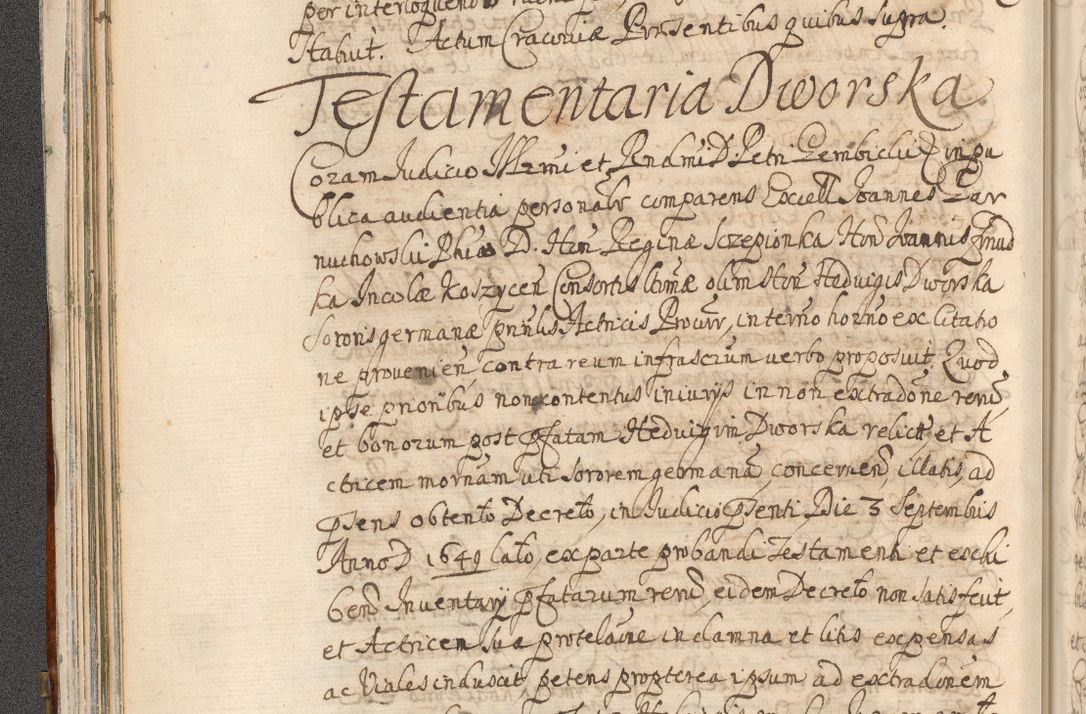 per interloquend
Habuit. Actum Cracoviæ Præsentibus quibus supra.
Testamentaria Dworska.
Coram Judicio Illrmi et Rndmi D Petri Gembicki in pu
blica audientia personalr comparens Excell Joannes Zar
nuchowski Phiæ D. Hon Reginæ Sczepionka Hon Joannis
ka Incolæ Koszycen Consortis ltimæ olim Hon Hedvigis Dworska
Sororis germanæ pnnlis Actricis Procurr, in termo horno ex Citatio
ne provenien, contra reum infrascrum verbo proposuit Quod
ipse prioribus non contentus iniurijs in non extradone rerum
et bonorum post pfatam Hedvigim Dworska relict et A
ctricem mornam uti Sororem germanam concernen, illatis, ad
psens obtento Decreto, in Judicio psenti, Die 3 Septembris
Anno D 1649 lato, ex parte probandi Testamenti et exhi
bend Inventarij pfatarum rerum, eidem Decreto non satisfecit,
et Actricem sua protelaone in damna et litis expensas
ac Viales induxit petens propterea ipsum ad extradonem